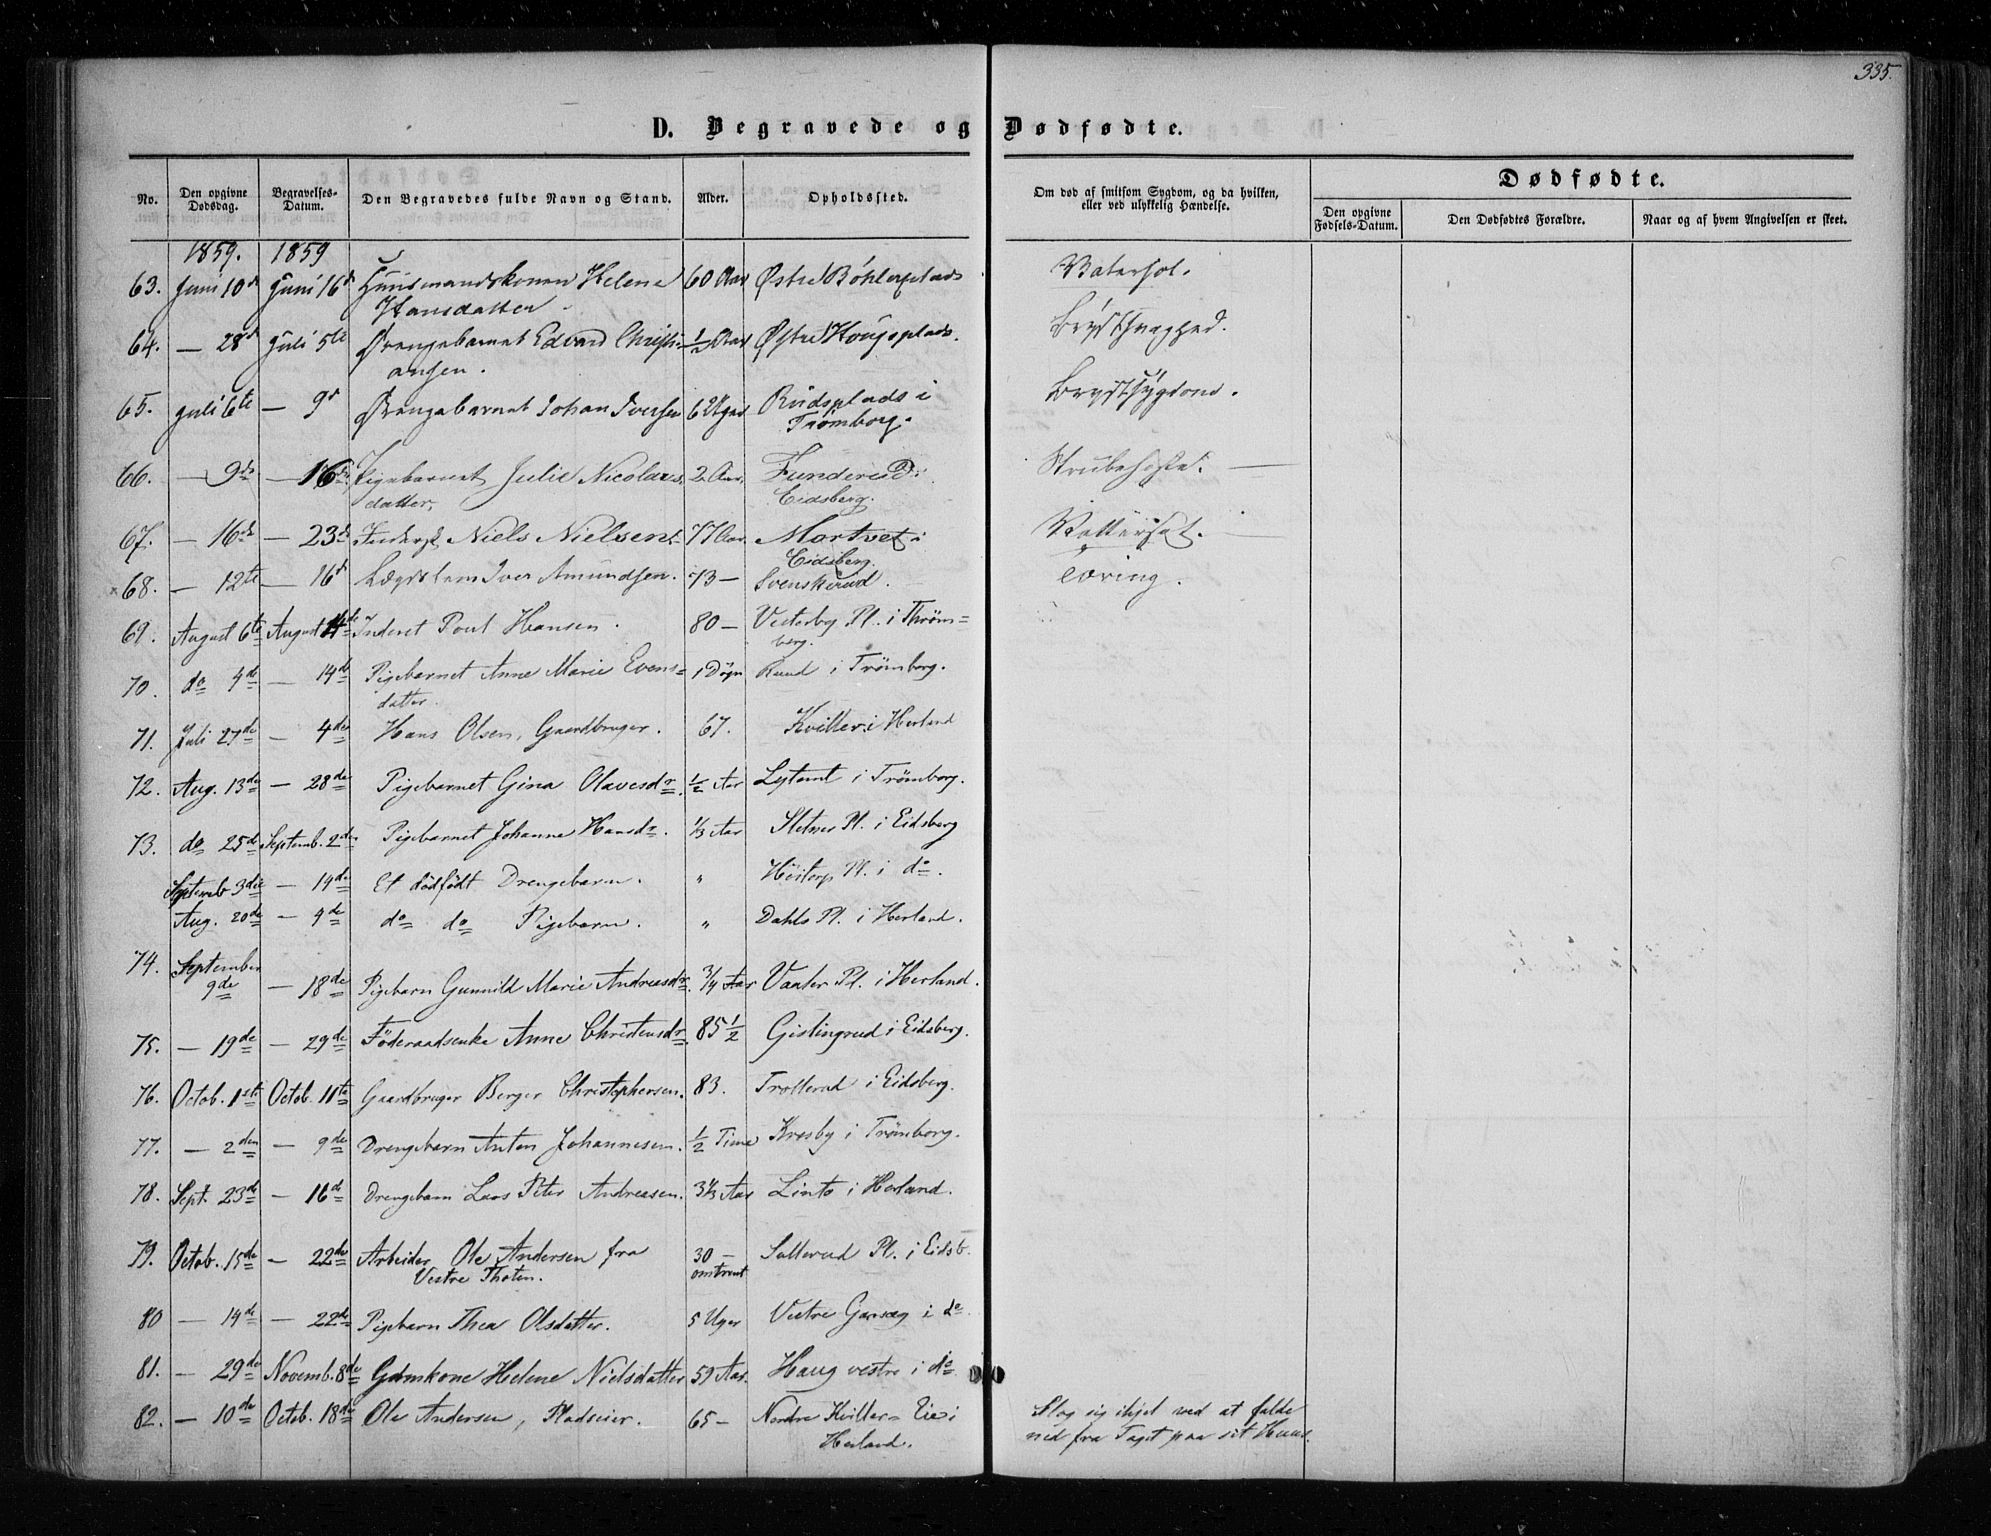 335.
D. Begravede og Dødfødte.
No. Den opgivne Dødsdag. Begravelses-Datum. Den Begravedes fulde Navn og Stand. Alder. Opholdssted. Om død af smitsom Sygdom, og da hvilken, eller ved ulykkelig Hændelse. Dødfødte.
Den opgivne Fødsels-Datum. Den Dødfødtes Forældre. Naar og af hvem Angivelsen er skeet.
1859. 1859
63. Juni 10d Juni 16d Huusmandskonen Helene 60 Aar Østre Bøhlerplads Vatersot.
Hansdatter
64. — 28d Juli 5te Drengebarnet Edvard Christi- ½ Aar Østre Hougsplads. Brystsvaghed.
ansen.
65. Juli 6te — 9d Drengebarnet Johan Iversen 6 Uger Rudsplads i Brystsygdom.
Trømborg.
66. — 9de — 16de Pigebarnet Julie Nicolais 2 Aar. Funderud i Strubehoste. —
datter. Eidsberg.
67. — 16de — 23de Niels Nielsen. 77 Aar. Mortvet i Vattersot. —
Eidsberg.
68. — 12te — 16d Lægdslem Iver Amundsen. 73 — Svenskerud. Tæring.
69. August 6te August 14de Inderst Poul Hansen. 80 — Vesterby Pl. i Thrøm=
berg.
70. do 9de — 14d Pigebarnet Anne Marie Evens= 1 Døgn Ruud i Trømborg.
datter.
71. Juli 27de — 4de Hans Olsen, Gaardbruger. 67. Kviller i Herland
72. Aug. 13de — 28de Pigebarnet Gina Olavesdr. ½ Aar i Trømborg.
73. do 25de Septemb. 2den Pigebarnet Johanne Hansdr. ⅓ Aar Sletnes Pl. i Eidsberg
Septemb 3die — 14de Et dødfødt Drengebarn. " Heitorp Pl. i do.
Aug. 20de — 9de do do Pigebarn. " Dahls Pl. i Herland.
74. September
9de — 18de Pigebarn Gunnild Marie Andreasdr. ¾ Aar Vaaler Pl. i Herland.
75. — 19de — 29de Föderaadsenke Anne Christensdr. 85 ½ Gislingrud i Eidsberg.
76. Octob. 1ste Octob. 11te Gaardbruger Berger Christophersen. 83. Trollerud i Eidsberg.
77. — 2den — 9de Drengebarn Anton Johannesen. ½ Time Krosby i Trømborg.
78. Sept. 23de — 16d Drengebarn Lars Peter Andreasen. 3⅓ Aar Linto i Herland.
79. Octob. 15de — 22de Arbeider Ole Andersen fra 30 — Sallerud Pl. i Eidsb.
Vestre Thoten. omtrent
80 — 14de — 22de Pigebarn Thea Olsdatter. 5 Uger Vestre Garseg i do
81. — 29de Novemb. 8de Gdmkone Helene Nielsdatter 59 Aar. Haug vestre i do
82. — 10de Octob. 18de Ole Andersen, Pladseier. 65 — Nordre Kviller= Eie i Slog sig ihjel ved at falde
Herland. ned fra Taget paa sit Huus.